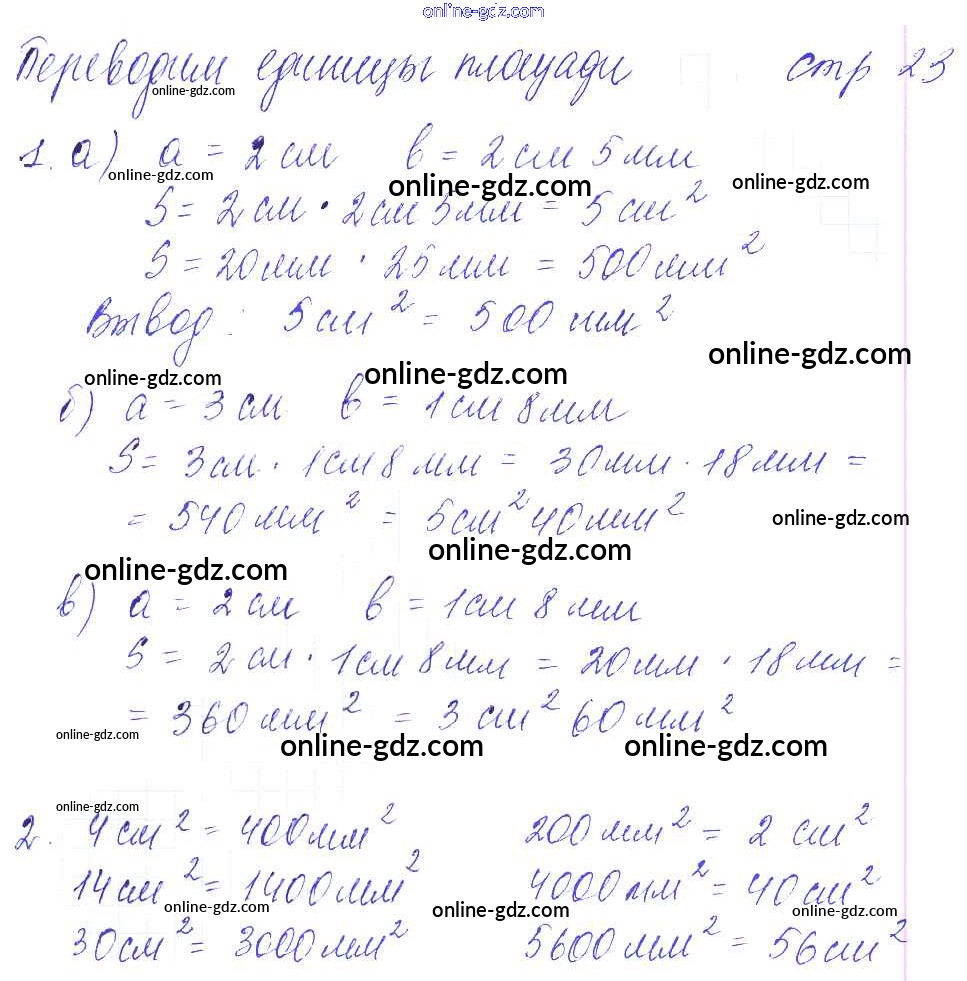 online-gdz.com
Переводим единицы площади стр 23
online-gdz.com
1. а) a = 2 см b = 2 см 5 мм
online-gdz.com online-gdz.com online-gdz.com
S = 2 см · 2 см 5 мм = 5 см²
S = 20 мм · 25 мм = 500 мм²
Вывод: 5 см² = 500 мм²
online-gdz.com
online-gdz.com online-gdz.com
б) a = 3 см b = 1 см 8 мм
S = 3 см · 1 см 8 мм = 30 мм · 18 мм =
= 540 мм² = 5 см² 40 мм²
online-gdz.com
online-gdz.com
online-gdz.com
в) a = 2 см b = 1 см 8 мм
S = 2 см · 1 см 8 мм = 20 мм · 18 мм =
= 360 мм² = 3 см² 60 мм²
online-gdz.com
online-gdz.com online-gdz.com
online-gdz.com
2. 4 см² = 400 мм² 200 мм² = 2 см²
14 см² = 1400 мм² 4000 мм² = 40 см²
online-gdz.com online-gdz.com online-gdz.com
30 см² = 3000 мм² 5600 мм² = 56 см²